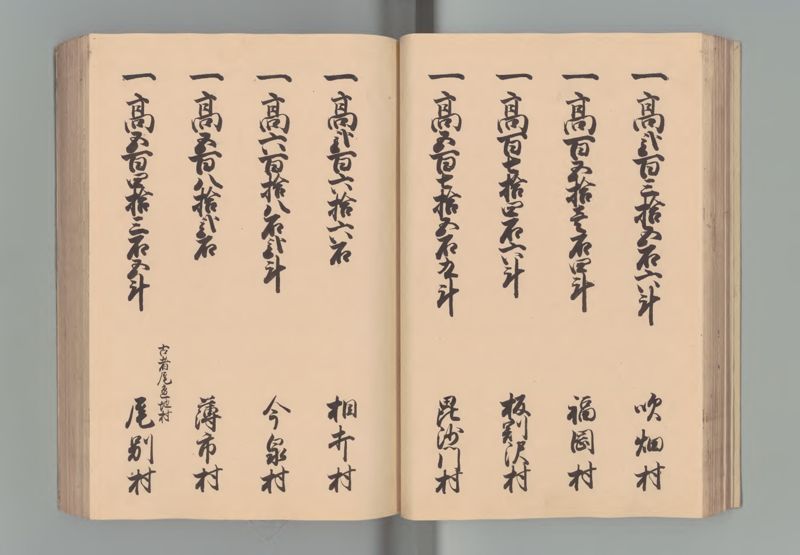 一高弐百三拾五石六斗 吹畑村
一高百五拾壱石四斗 福岡村
一高百七拾四石六斗 板割沢村
一高五百七拾五石九斗 毘沙門村
一高弐百六拾六石 相内村
一高六百拾八石弐斗 今泉村
一高五百八拾弐石 薄市村
古者尾辺地村
一高五百四拾三石五斗 尾別村